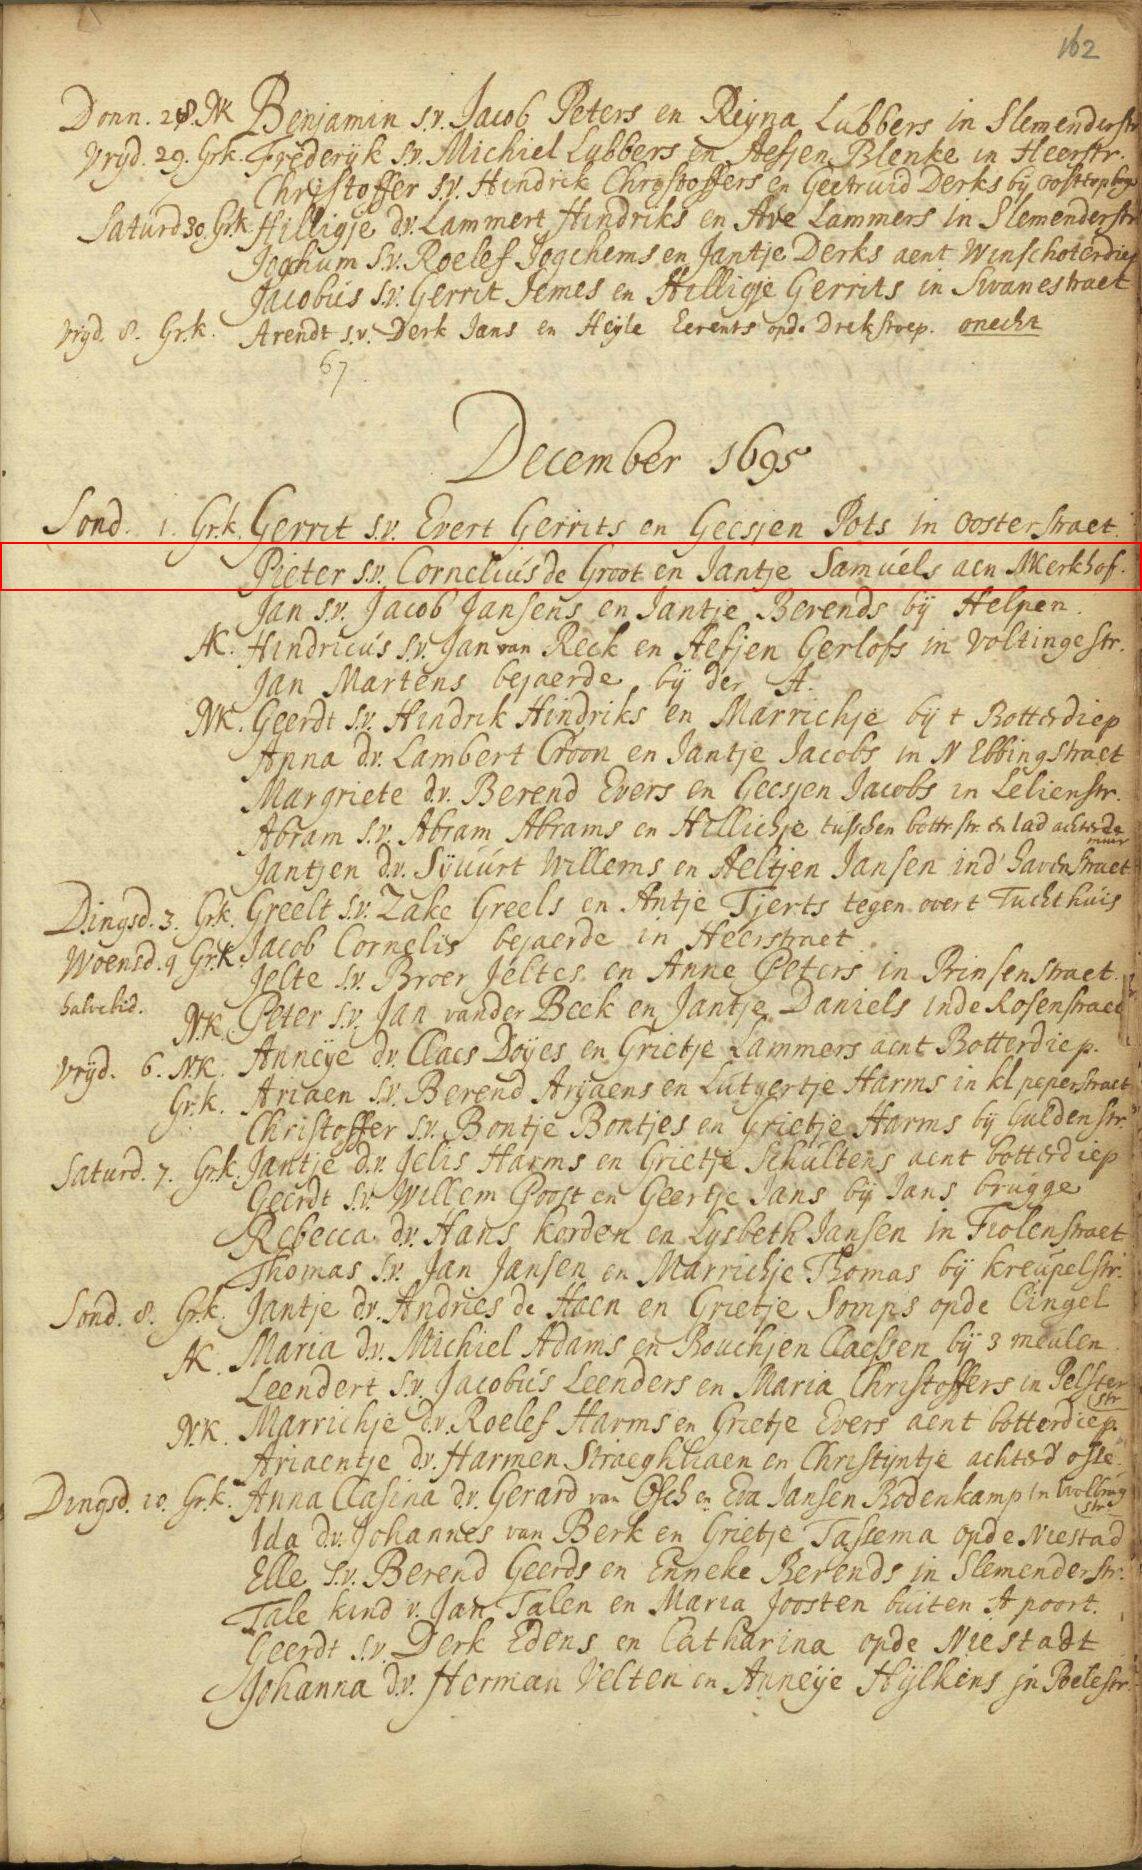 162
Donn. 28. NK Benjamin s.v. Jacob Peters en Reijna Lubbers in Slemenderstr
Vryd. 29. Gr.k. Frederyk s.v. Michiel Lubbers en Aefjen Blenke in Heerstr.
Christoffer s.v. Hindrik Christoffers en Geetruid Derks bij
Saturd 30. Gr.k. Hilligje d.v. Lammert Hindriks en Ave Lammers in Slemenderstr
Jochum s.v. Roelef Jogchems en Jantje Derks aent Winschoterdiep
Jacobus s.v. Gerrit Jemes en Hilligje Gerrits in Swanestraet
Vryd. 8. Gr.k. Arendt s.v. Derk Jans en Heyle Eerents opde Drekstoep. onecht
67
December 1695
Sond. 1. Gr.k. Gerrit s.v. Evert Gerrits en Geesjen Pots in Oosterstraet.
Pieter s.v. Cornelius de Groot en Jantje Samuels aen MKerkhof.
Jan s.v. Jacob Jansens en Jantje Berends bij Helpen.
AK. Hindricus s.v. Jan van Reck en Aefjen Gerlofs in Voltingestr.
Jan Martens bejaerde bij der A.
NK. Geerdt s.v. Hindrik Hindriks en Marrichje bij t Botterdiep
Anna d.v. Lambert Croon en Jantje Jacobs in N Ebbingstraet
Margriete d.v. Berend Evers en Geesjen Jacobs in Lelienstr.
Abram s.v. Abram Abrams en Hillichje tusschen bottr str. en lad achterde
muur
Jantjen d.v. Sijuurt Willems en Aeltjen Jansen ind' havenstraet
Dingsd. 3. Gr.k. Greelt s.v. Zake Greels en Antje Tjerts tegen overt Tuchthuis
Woensd. 4 Gr.K. Jacob Cornelis bejaerde in Heerstraet
Jelte s.v. Broer Jeltes en Anne Peters in Prinsenstraet.
N.K. Peter s.v. Jan vander Beek en Jantje Daniels inde Rosenstraet
Vryd. 6. N.K. Anneije d.v. Claes Doijes en Grietje Lammers aent Botterdiep.
Gr.k. Ariaen s.v. Berend Arijaens en Lutgertje Harms in kl peperstraet
Christoffer s.v. Bontje Bontjes en Grietje Harms bij Guldenstr.
Saturd. 7. Gr.k. Jantje d.v. Jelis Harms en Grietje Schultens aent botterdiep
Geerdt s.v. Willem Poost en Geertje Jans bij Jans brugge
Rebecca d.v. Hans korden en Lysbeth Jansen in Fiolenstraet
Thomas s.v. Jan Jansen en Marrichje Thomas bij kreupelstr.
Sond. 8. Gr.k. Jantje d.v. Andries de Haen en Grietje Somps opde Cingel
AK. Maria d.v. Michiel Adams en Bouchjen Claessen bij 3 meulen.
Leendert s.v. Jacobus Leenders en Maria Christoffers in Pelster
str
N.K. Marrichje d.v. Roelef Harms en Grietje Evers aent botterdiep.
Ariaentje d.v. Harmen Straeghhaen en Christijntje
Dingsd. 10. Gr.k. Anna Clasina d.v. Gerard van en Eva Jansen Rodenkamp in
str
Ida d.v. Johannes van Berk en Grietje Tassema opde Niestad
Elle s.v. Berend Geerds en Enneke Berends in Slemenderstr.
Tale kind v. Jan Talen en Maria Joosten buiten A poort.
Geerdt s.v. Derk Edens en Catharina opde Niestadt
Johanna d.v. Herman Velten en Anneije Hijlkens in Poelestr.